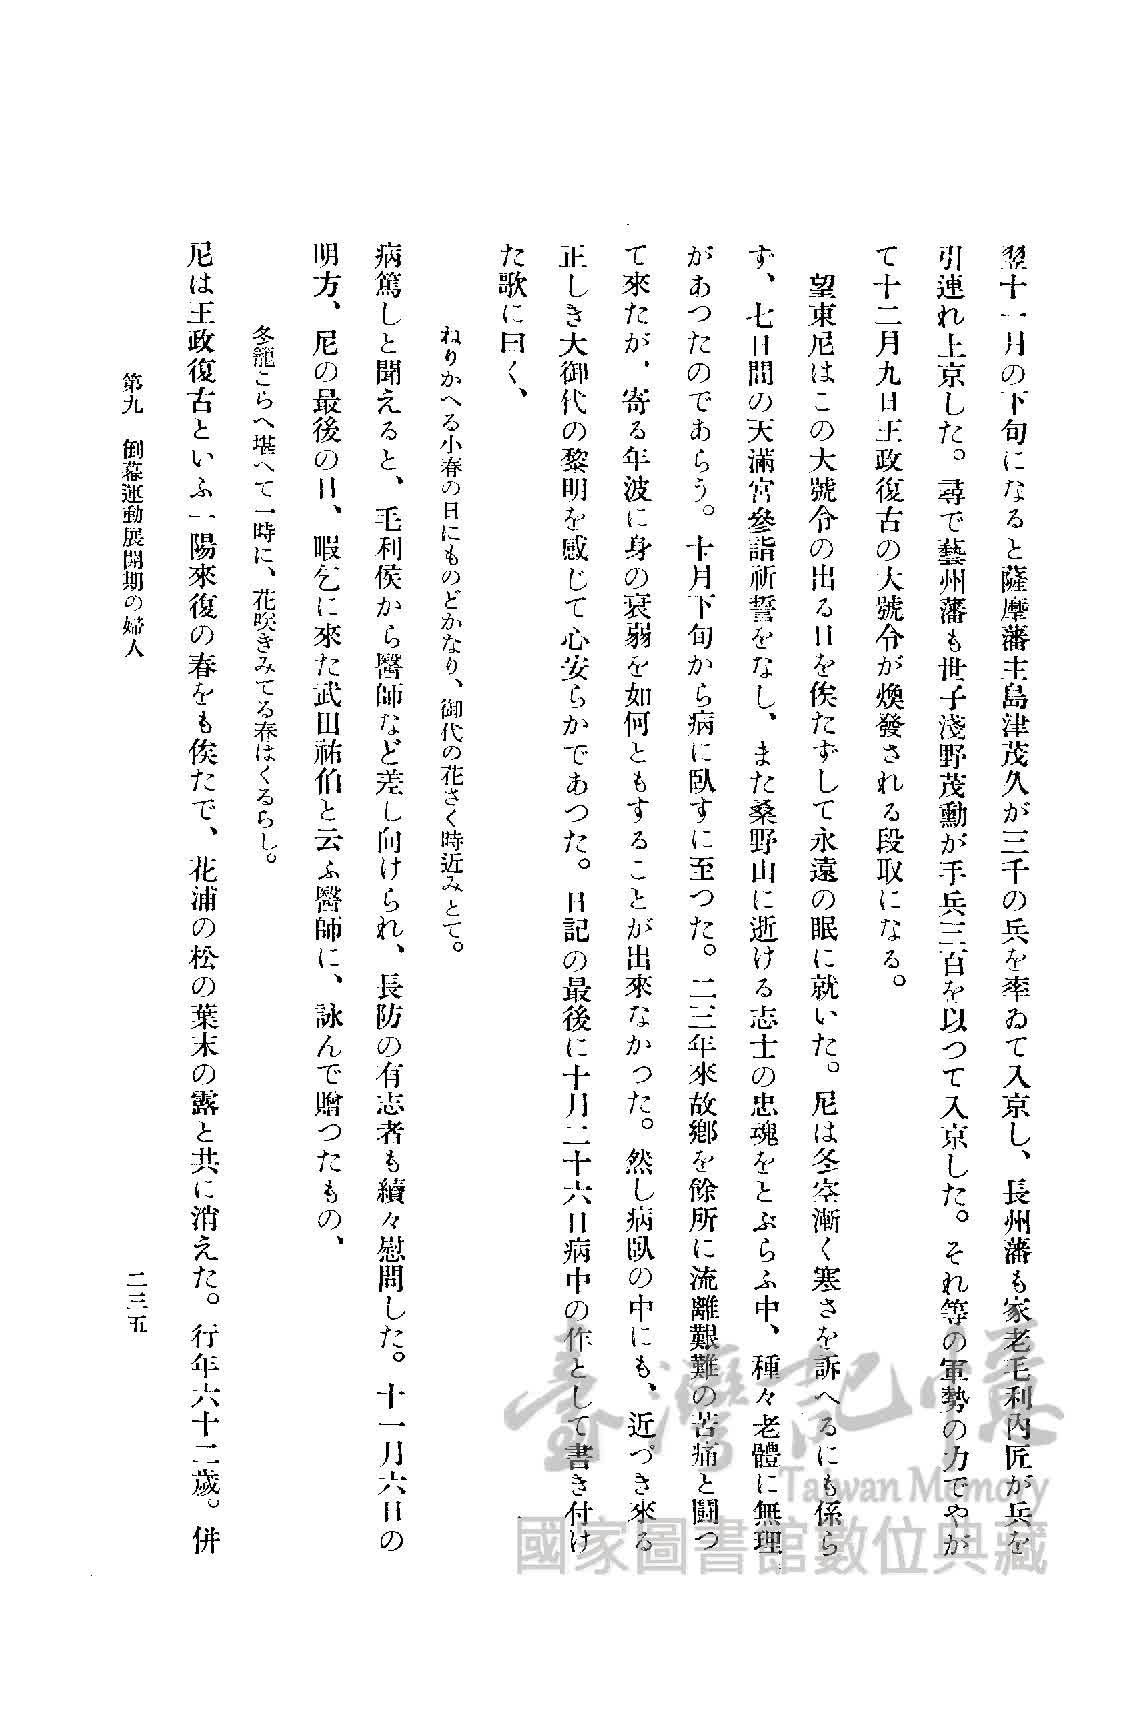 翌十一月の下旬になると薩摩藩主島津茂久が三千の兵を率ゐて入京し、長州藩も家老毛利內匠が兵を
引連れ上京した。尋で藝州藩も世子淺野茂勳が手兵三百を以つて入京した。それ等の軍勢の力でやが
て十二月九日王政復古の大號令が煥發される段取になる。
望東尼はこの大號令の出る日を俟たずして永遠の眠に就いた。尼は冬空漸く寒さを訴へるにも係ら
ず、七日間の天滿宮參詣祈誓をなし、また桑野山に逝ける志士の忠魂をとぶらふ中、種々老體に無理
があつたのであらう。十月下旬から病に臥すに至つた。二三年來故鄕を餘所に流離艱難の苦痛と鬪つ
て來たが、寄る年波に身の衰弱を如何ともすることが出來なかつた。然し病臥の中にも、近づき來る
正しき大御代の黎明を感じて心安らかであつた。日記の最後に十月二十六日病中の作として書き付け
た歌に曰く、
ねりかへる小春の日にものどかなり、御代の花さく時近みとて。
病篤しと聞えると、毛利侯から醫師など差し向けられ、長防の有志者も續々慰問した。十一月六日の
明方、尼の最後の日、暇乞に來た武田祐伯と云ふ醫師に、詠んで贈つたもの、
冬籠こらへ堪へて一時に、花咲きみてる春はくるらし。
尼は王政復古といふ一陽來復の春をも俟たで、花浦の松の葉末の露と共に消えた。行年六十二歲。併
第九 倒幕運動展開期の婦人
二三五
臺灣記憶
Taiwan Memory
國家圖書館數位典藏